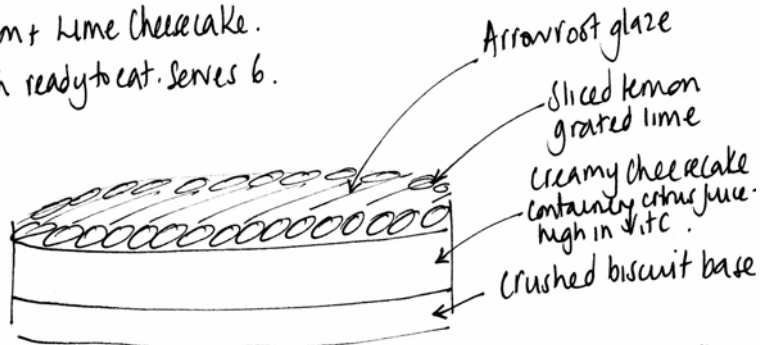 + Lime Cheesecake.
ready to eat. Serves 6.
Arrowroot glaze
Sliced lemon
grated lime
creamy cheesecake
containing citrus juice.
high in Vit C.
Crushed biscuit base